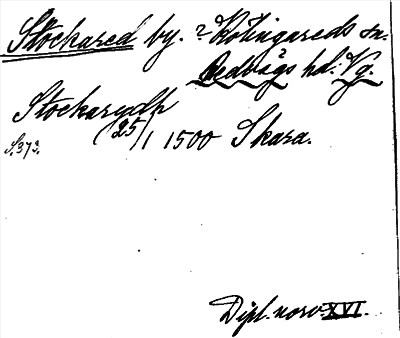 Stockared by. ? Kölingareds sn.
Redvägs hd. Vg.
Stockarydh
S. 373. (25/1 1500 Skara.
Dipl. norv. XVI.